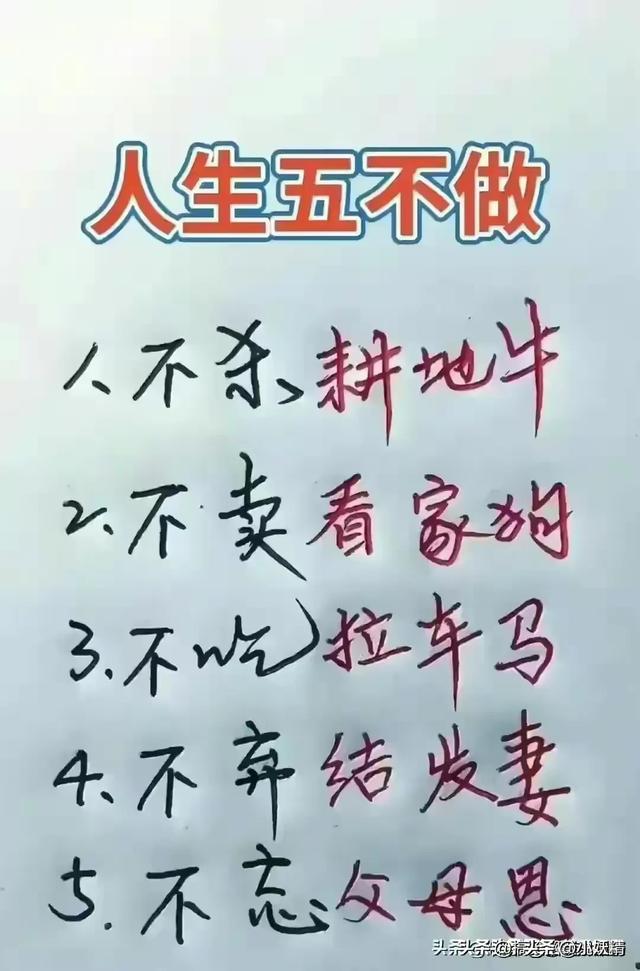 人生五不做
1、不杀耕地牛
2、不卖看家狗
3、不吃拉车马
4、不弃结发妻
5、不忘父母恩